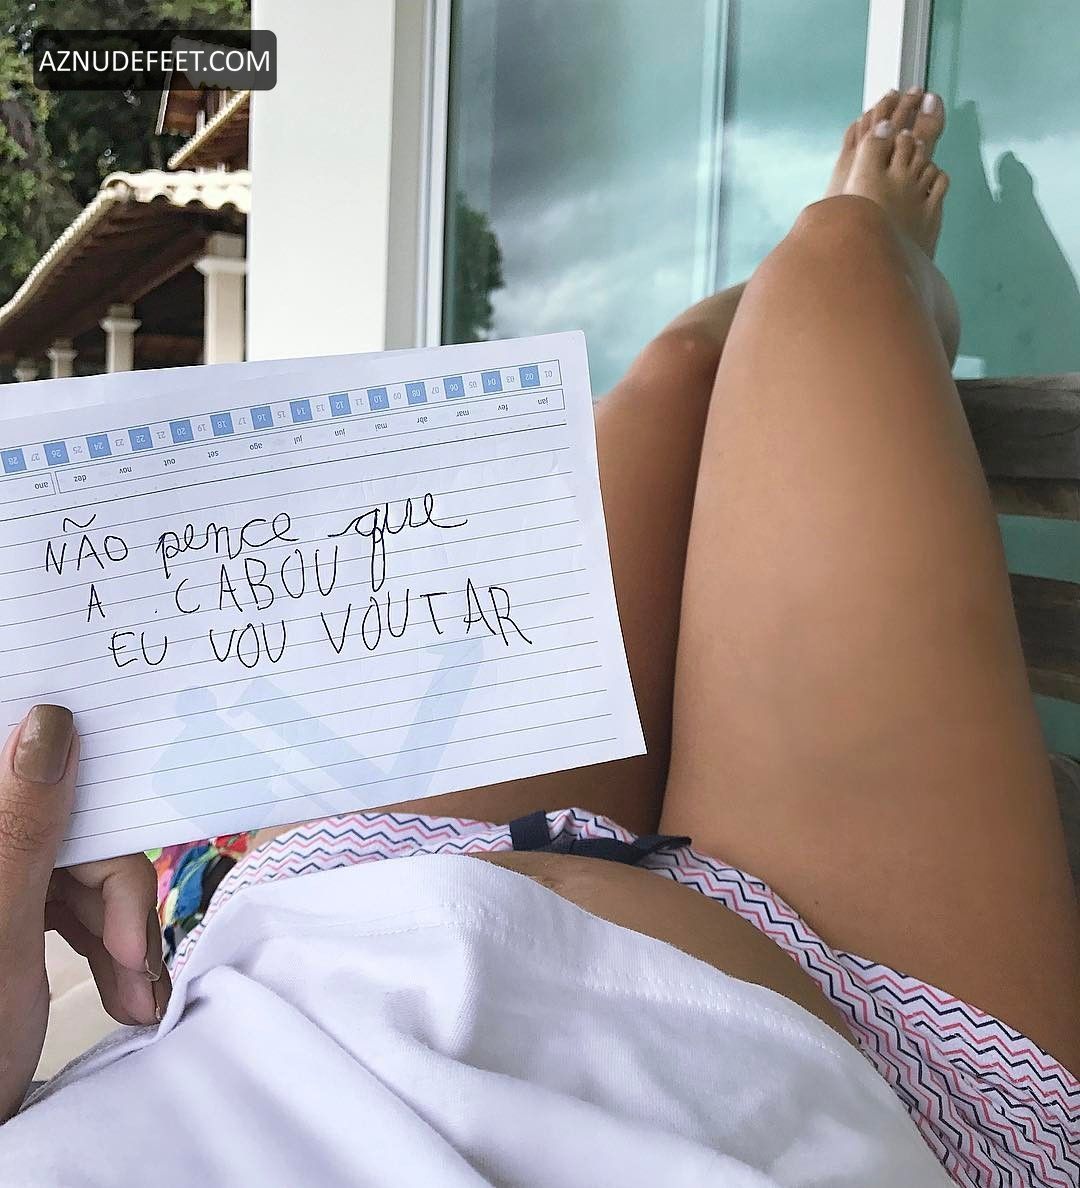 AZNUDEFEET.COM
01 02 03 04 05 06 07 08 09 10 11 12 13 14 15 16 17 18 19 20 21 22 23 24 25 26 27 28
jan fev mar abr mai jun jul ago set out nov dez ano
NÃO pence que
A CABOU
EU VOU VOUTAR